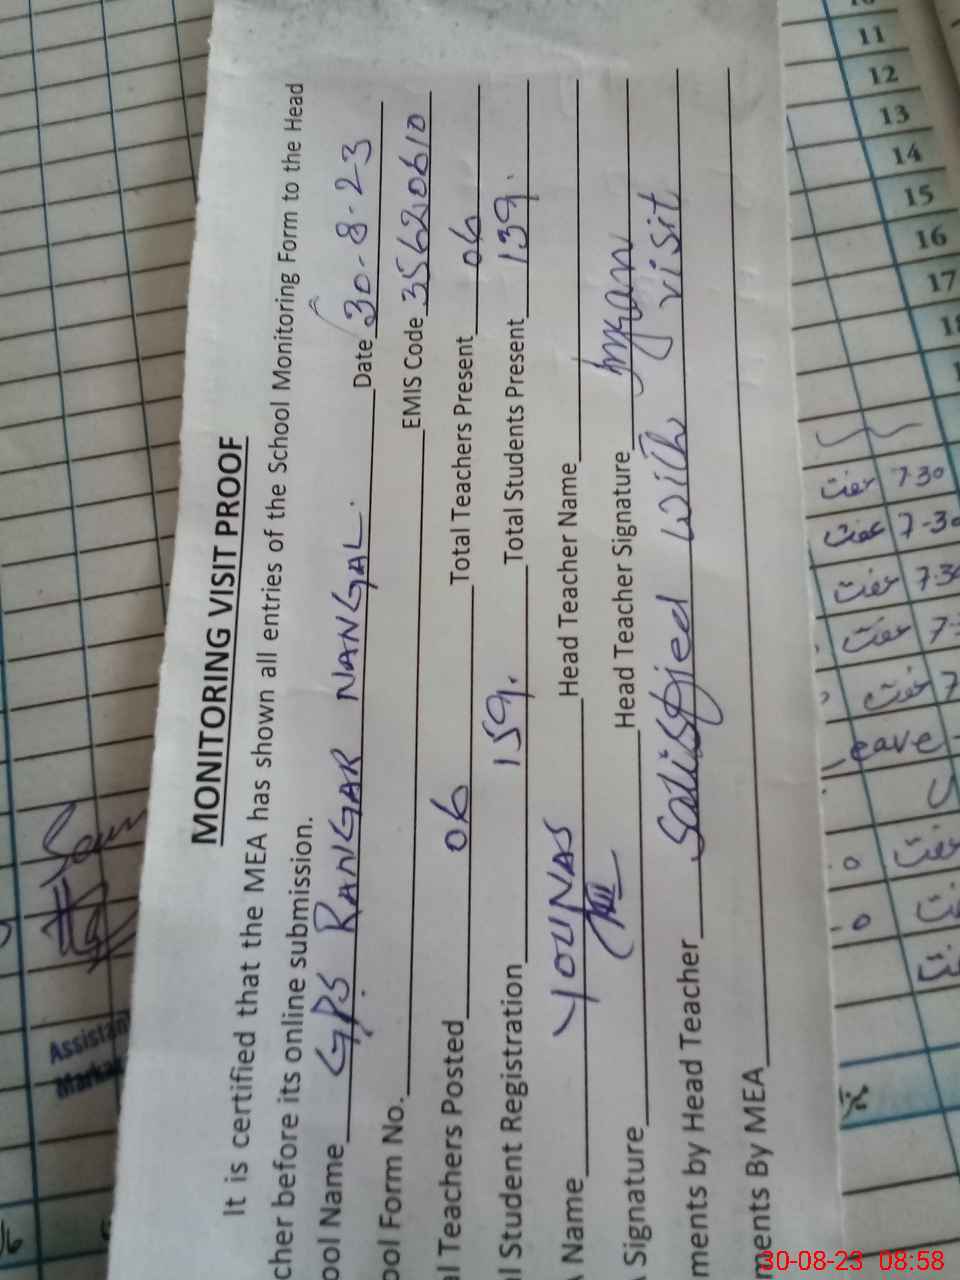 MONITORING VISIT PROOF
It is certified that the MEA has shown all entries of the School Monitoring Form to the Head
cher before its online submission.
ool Name GPS RANGAR NANGAL. Date 30-8-23
ool Form No. EMIS Code 35620610
l Teachers Posted 06 Total Teachers Present 06
l Student Registration 159. Total Students Present 139.
Name YOUNAS Head Teacher Name
Signature Head Teacher Signature Imran
ments by Head Teacher Satisfied with visit
ments By MEA
Assistan
Marka
11
12
13
14
15
16
17
7-30
7-30
7-30
eave
30-08-23 08:58